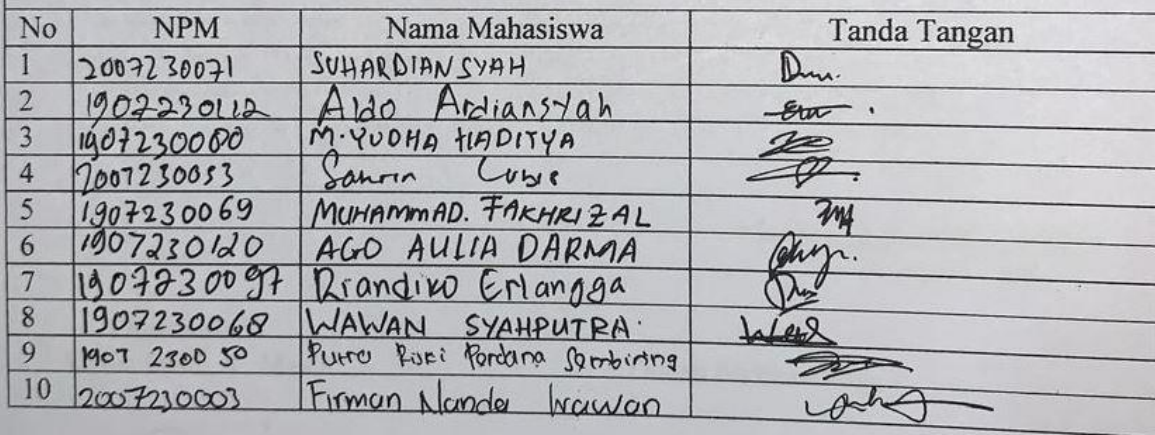 No NPM Nama Mahasiswa Tanda Tangan
1 2007230071 SUHARDIANSYAH
2 1907230112 Aldo Ardiansyah
3 1907230080 M. YUDHA HADITYA
4 2007230053 Sahrin Lubis
5 1907230069 MUHAMMAD. FAKHRIZAL
6 1907230120 AGO AULIA DARMA
7 1907230097 Driandiko Erlangga
8 1907230068 WAWAN SYAHPUTRA
9 1907230050 Putro Rizki Perdana Sembiring
10 2007230003 Firman Nanda Irawan